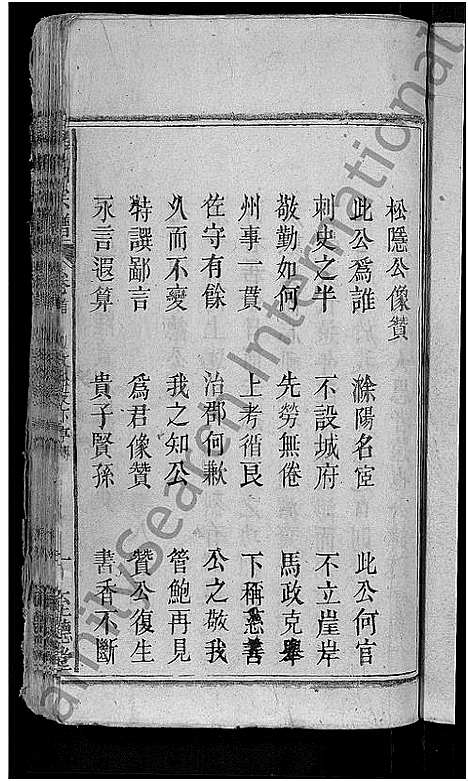 松隱公像贊
此公爲誰 滁陽名宦 此公何官
刺史之半 不設城府 不立崖岸
敬勤如何 先勞無倦 馬政克舉
州事一貫 上考循良 下稱慈善
佐守有餘 治郡何歉 公之敬我
久而不變 我之知公 管鮑再見
特譔鄙言 爲君像贊 贊公復生
永言遐算 貴子賢孫 書香不斷
FamilySearch International